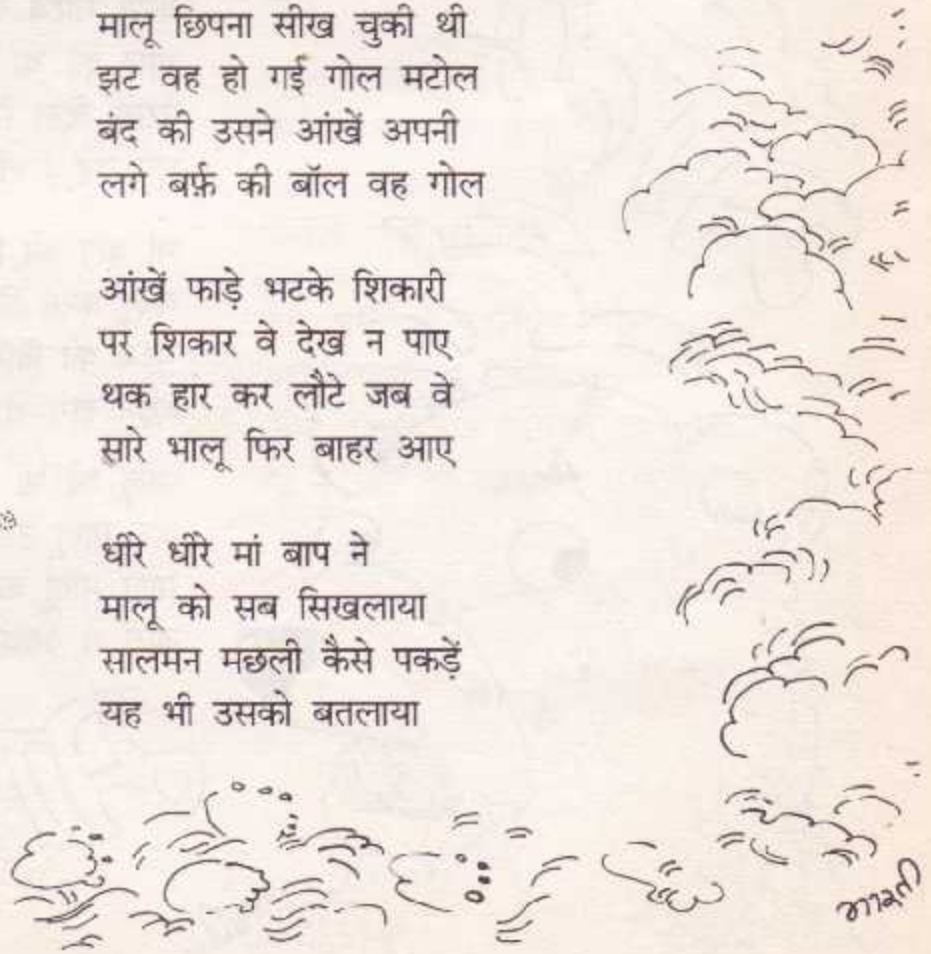 मालू छिपना सीख चुकी थी
झट वह हो गई गोल मटोल
बंद की उसने आंखें अपनी
लगे बर्फ़ की बॉल वह गोल

आंखें फाड़े भटके शिकारी
पर शिकार वे देख न पाए
थक हार कर लौटे जब वे
सारे भालू फिर बाहर आए

धीरे धीरे मां बाप ने
मालू को सब सिखलाया
सालमन मछली कैसे पकड़ें
यह भी उसको बतलाया